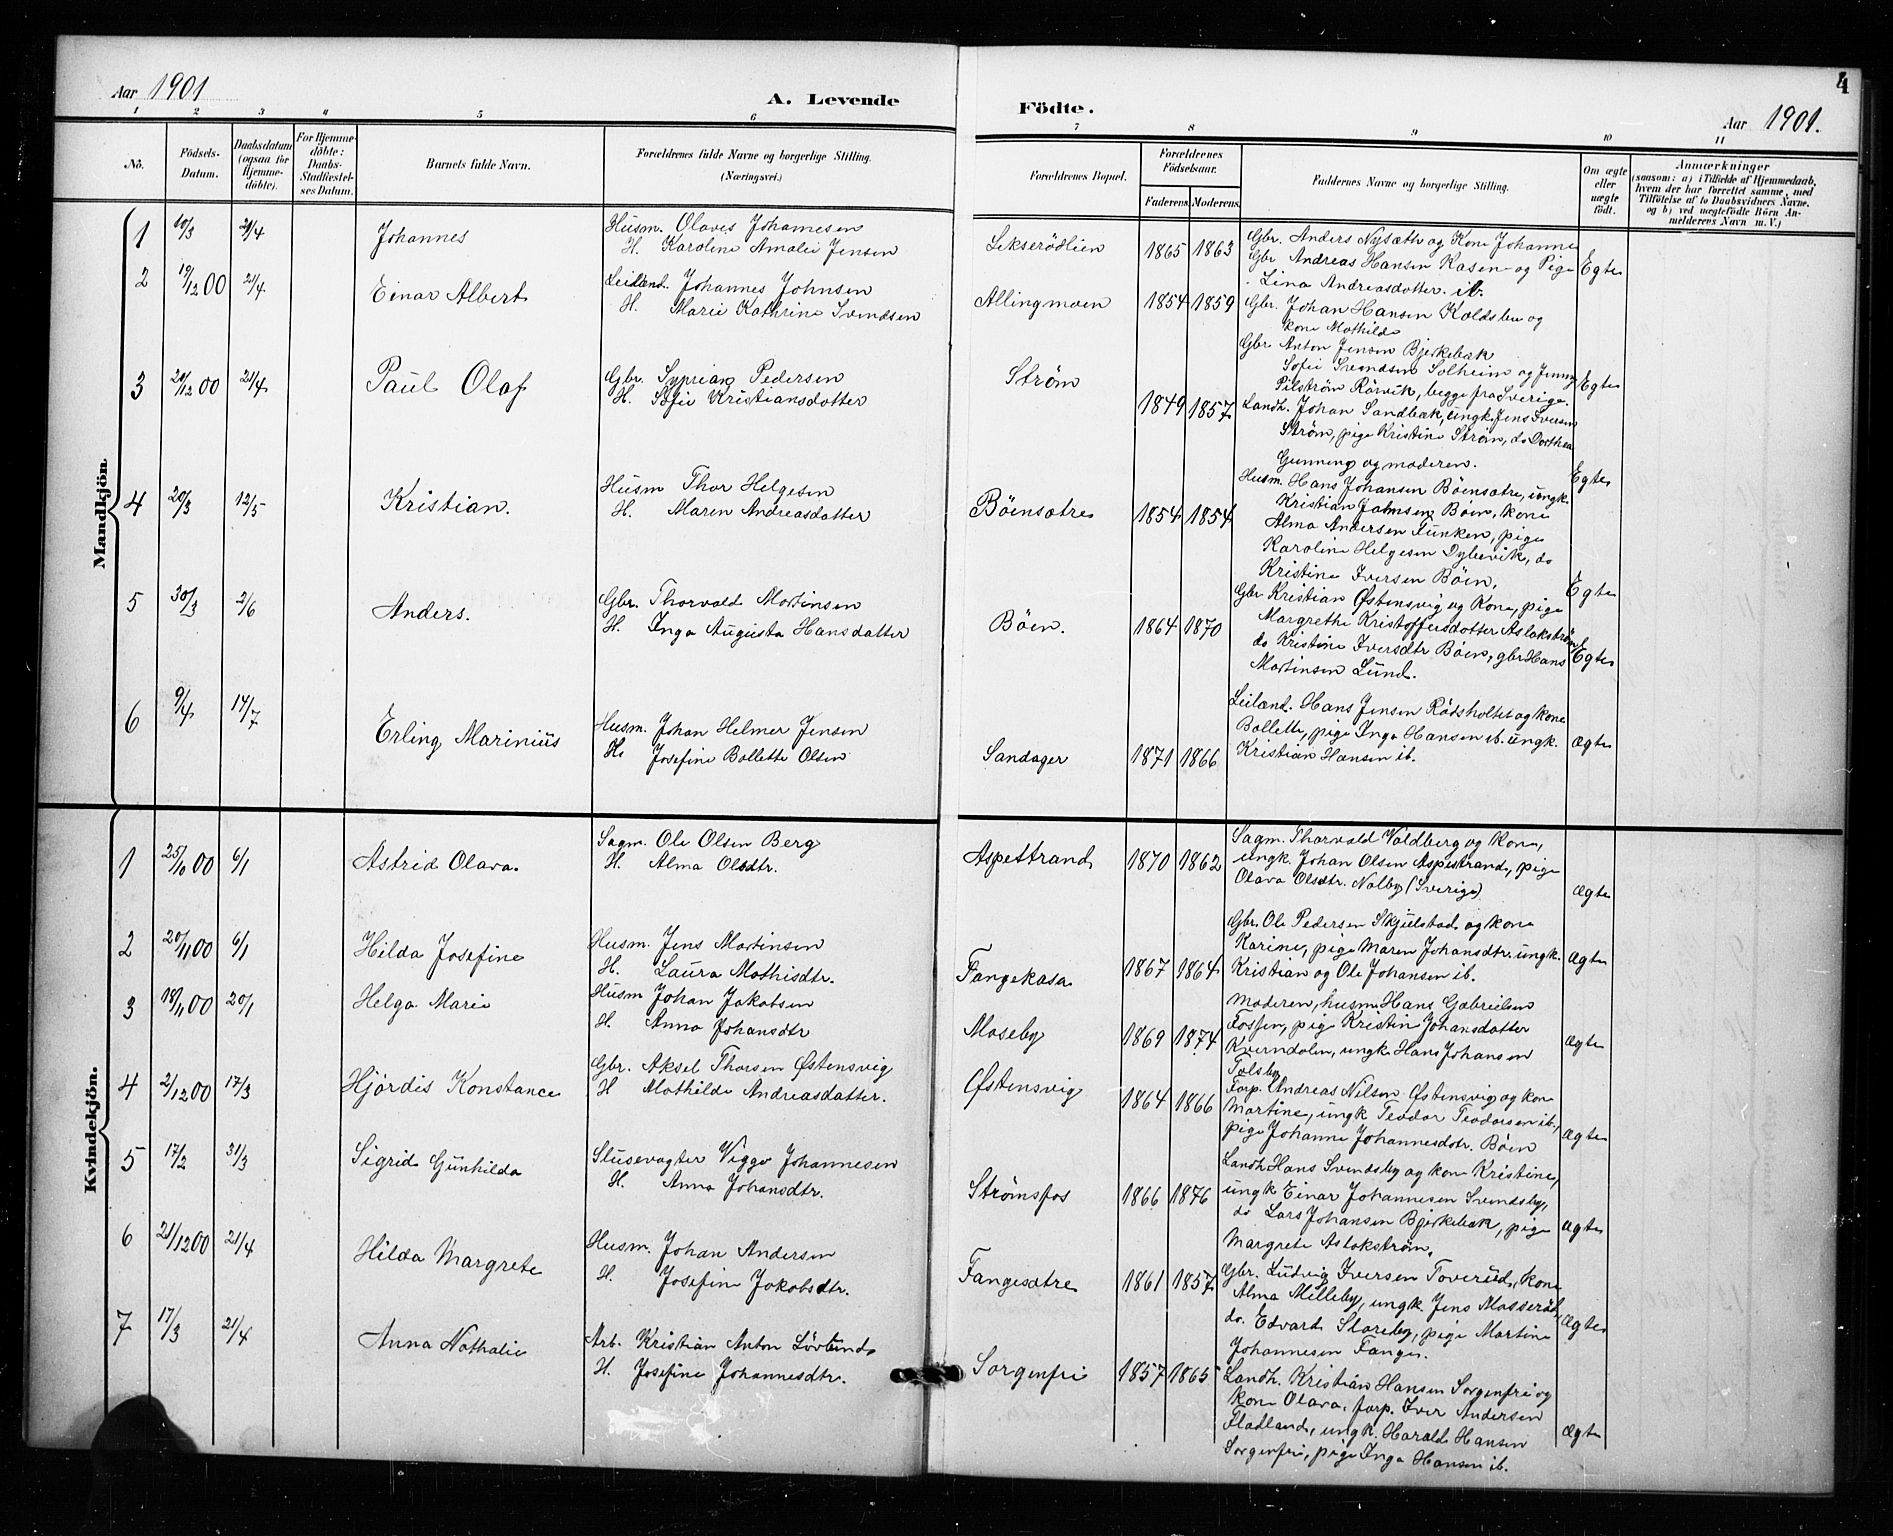 Aar 1901
A. Levende
Födte.
Aar 1901.
4
1 2 3 4 5 6 7 8 9 10 11
No.
Födsels-
Datum.
Daabsdatum
(ogsaa for
Hjemme-
döbte).
For Hjemme-
döbte:
Daabs-
Stadfæstel-
ses Datum.
Barnets fulde Navn.
Forældrenes fulde Navne og borgerlige Stilling.
(Næringsvei.)
Forældrenes Bopæl.
Forældrenes
Födselsaar.
Faderens. Moderens.
Faddernes Navne og borgerlige Stilling.
Om ægte
eller
uægte
födt.
Anmærkninger
(saasom: a) i Tilfælde af Hjemmedaab,
hvem der har forrettet samme, med
Tilföielse af to Daabsvidners Navne,
og b) ved uægtefödte Börn An-
melderens Navn m. V.)
Mandkjön.
1 10/3 21/4 Johannes
Husm. Olaves Johannesen
H. Karoline Amalie Jensen
1865 1863
Gbr. Anders Nysæth og Kone Johanne
Gbr Andreas Hansen Kasen og Pige
Lina Andreasdatter ib.
Egte
2 19/12 00 21/4 Einar Albert
Leilænd. Johannes Johnsen
H. Marie Kathrine Svendsen
Allingmoen 1854 1859
Gbr. Johan Hansen Koldsbu og
kone Mathilde
Gbr Anton Jensen Bjerkebæk
Sofie Svendsen Solheim og Jenny
Pilström Rörvik, begge fra Sverige.
Egte
3 21/12 00 21/4 Paul Olaf
Gbr. Syprian Pedersen
H. Sofie Kristiansdatter
Ström 1849 1857
Landh. Johan Sandbæk, ungk. Jens Iversen
Ström, pige Kristine Ström, do Dorthea
Gunneng og moderen.
Egte
4 20/3 12/5 Kristian.
Husm Thor Helgesen
H. Maren Andreasdatter
Böensætre 1854 1854
Husm. Hans Johansen Böensætre, ungk.
Kristian Johnsen Böen, kone
Alma Andersen Funken, pige
Karoline Helgesen Dybevik, do
Kristine Iversen Böen.
Egte
5 30/3 2/6 Anders.
Gbr. Thorvald Martinsen
H. Inga Augusta Hansdatter
Böen. 1864 1870
Gbr Kristian Østensvig og Kone, pige
Margrethe Kristoffersdatter Aslakström
do Kristine Iversdtr Böen, gbr Hans
Martinsen Lund.
Egte
6 9/4 14/7 Erling Marinius
Husm. Johan Helmer Jensen
H. Josefine Bollette Olsen
Sandager 1871 1866
Leilænd. Hans Jensen Rödsholtet og kone
Bollette, pige Inga Hansen ib. ungk.
Kristian Hansen ib.
ægte
Kvindekjön.
1 25/10 00 6/1 Astrid Olava.
Sagm. Ole Olsen Berg
H. Alma Olsdtr.
Aspestrand 1870 1862
Sagm. Thorvald Valdberg og kone,
ungk. Johan Olsen Aspestrand, pige
Olava Olsdtr. Nolby (Sverige)
ægte
2 20/11 00 6/1 Hilda Josefine
Husm. Jens Martinsen
H. Laura Mathisdtr.
Fangekasa 1867 1864
Gbr. Ole Pedersen Skjulstad og kone
Karine, pige Maren Johansdtr. ungk.
Kristian og Ole Johansen ib.
ægte
3 18/11 00 20/1 Helga Marie
Husm Johan Jakobsen
H. Anna Johansdtr
Moseby 1869 1874
Moderen, husm. Hans Gabrielsen
Fossen, pige Kristin Johansdatter
Kverndalen, ungk Hans Johansen
Tolsby
ægte
4 2/12 00 17/3 Hjördis Konstance
Gbr. Aksel Thorsen Østensvig
H Mathilde Andreasdatter.
Østensvig 1864 1866
Forp. Andreas Nilsen Østensvig og kone
Martine, ungk Teodor Teodorsen ib.,
pige Johanne Johannesdtr. Böen
ægte
5 17/2 31/3 Sigrid Gunhilda
Slusevogter Viggo Johannesen
H. Anna Johansdtr.
Strömsfos 1866 1876
Landh Hans Svendsby og kone Kristine,
ungk Einar Johannesen Svendsby,
do Lars Johansen Bjerkebæk, pige
Margrete Aslakström.
ægte
6 21/12 00 21/4 Hilda Margrete
Husm. Johan Andersen
H. Josefine Jakobsdtr.
Fangesætre 1861 1857
Gbr. Ludvig Iversen Toverud, kone
Alma Milleby, ungk. Jens Masseröd,
do. Edvard Storeby, pige Martine
Johannesen Fange.
ægte
7 17/3 21/4 Anna Nathalie
Arb. Kristian Anton Lövlund
H. Josefine Johannesdtr.
Sorgenfri 1857 1865
Landh. Kristian Hansen Sorgenfri og
kone Olava, forp. Iver Andersen
Fladland, ungk. Harald Hansen
Sorgenfri, pige Inga Hansen ib.
ægte